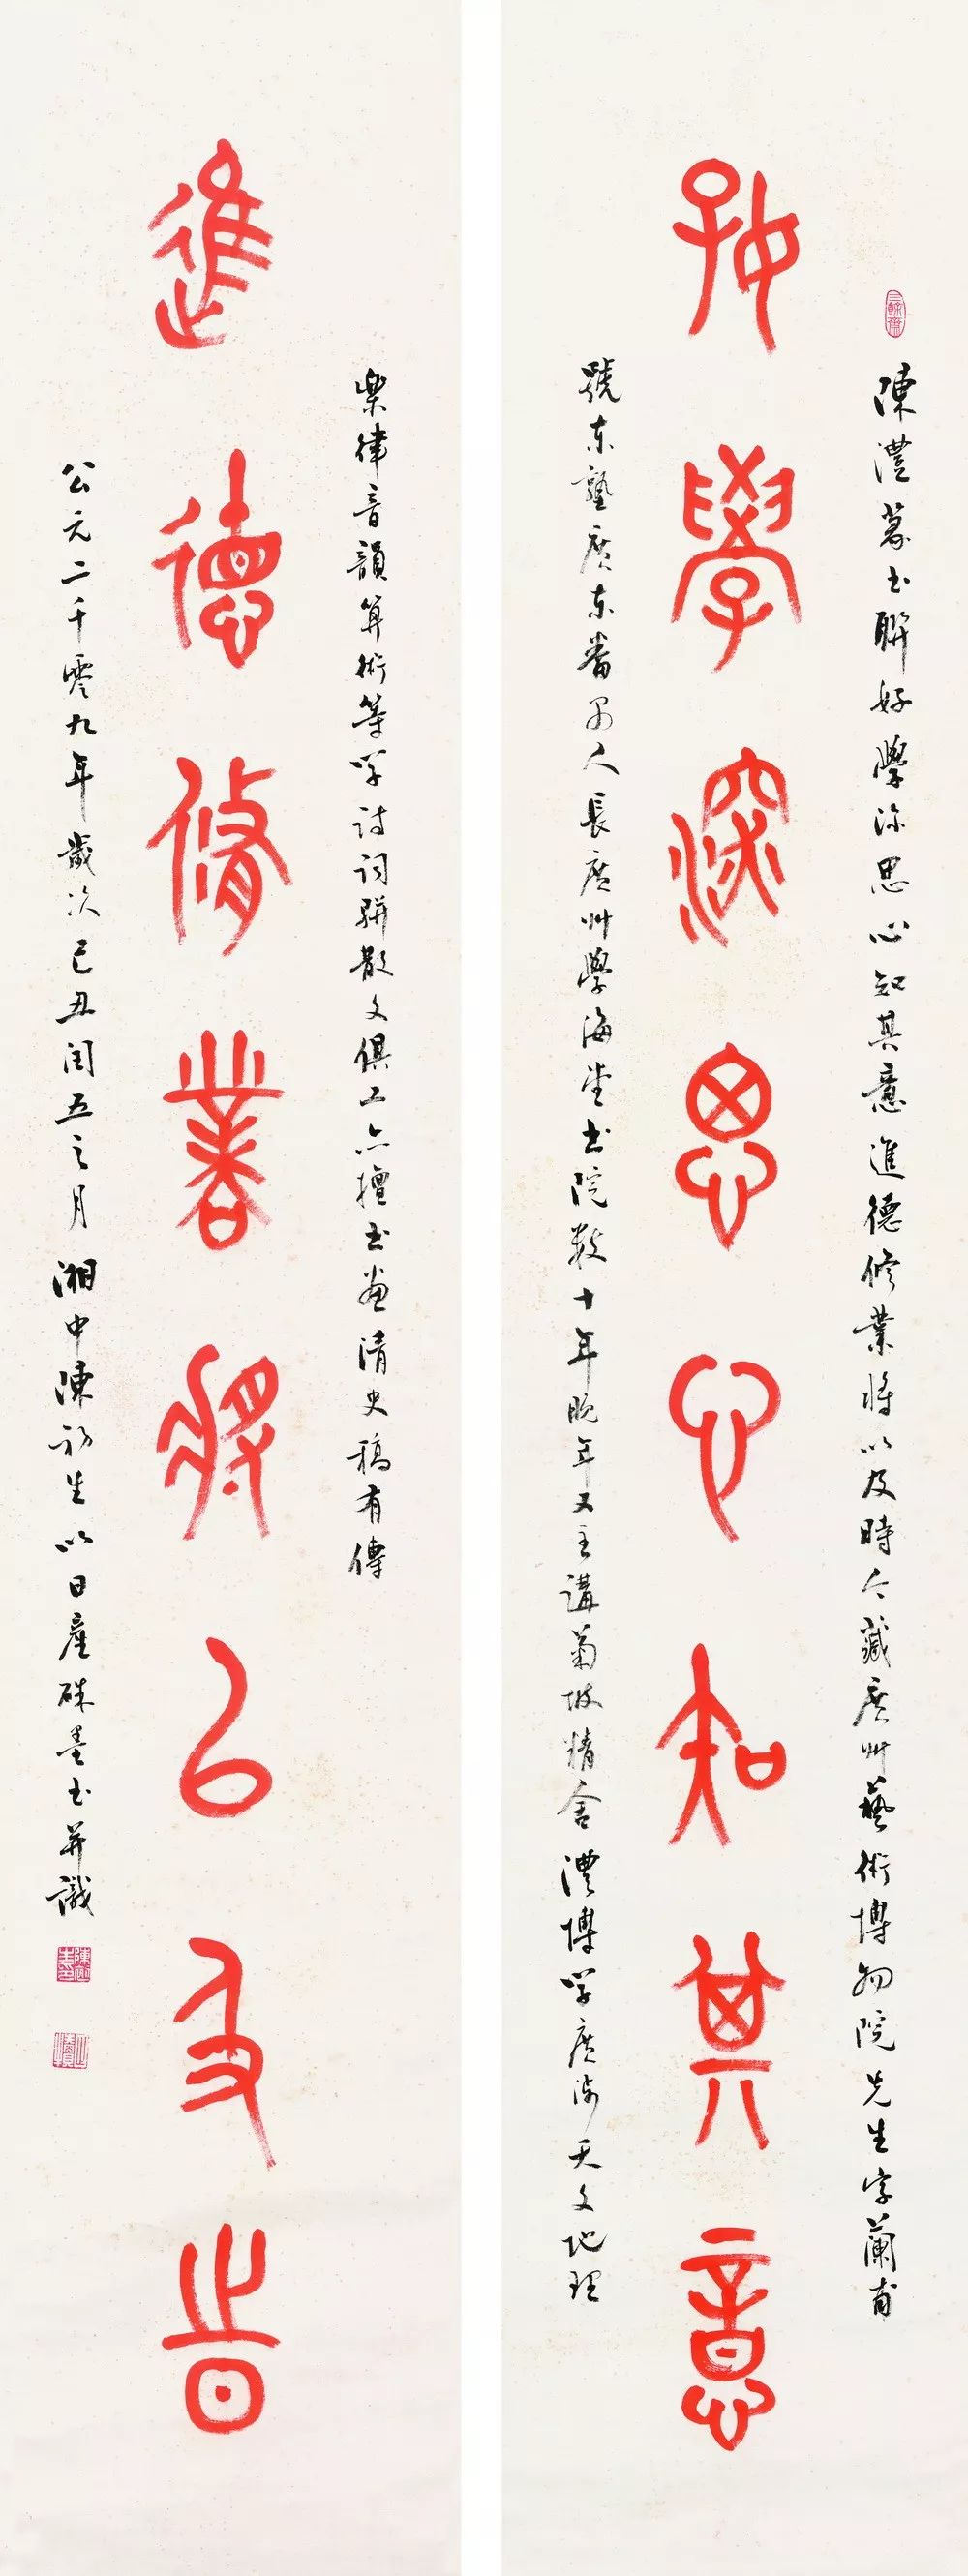 好學深思心知其意
陳澧篆书聯好學深思心知其意進德修業將以及時今藏廣州藝術博物院先生字蘭甫
號东塾廣东番禺人長廣州學海堂书院數十年晚年又主講菊坡精舍澧博學廣涉天文地理
樂律音韻算術等学詩詞駢散文俱工亦擅书畫清史稿有傳
進德脩業將以及時
公元二千零九年歲次己丑閏五之月湘中陳初生以日產硃墨书并識